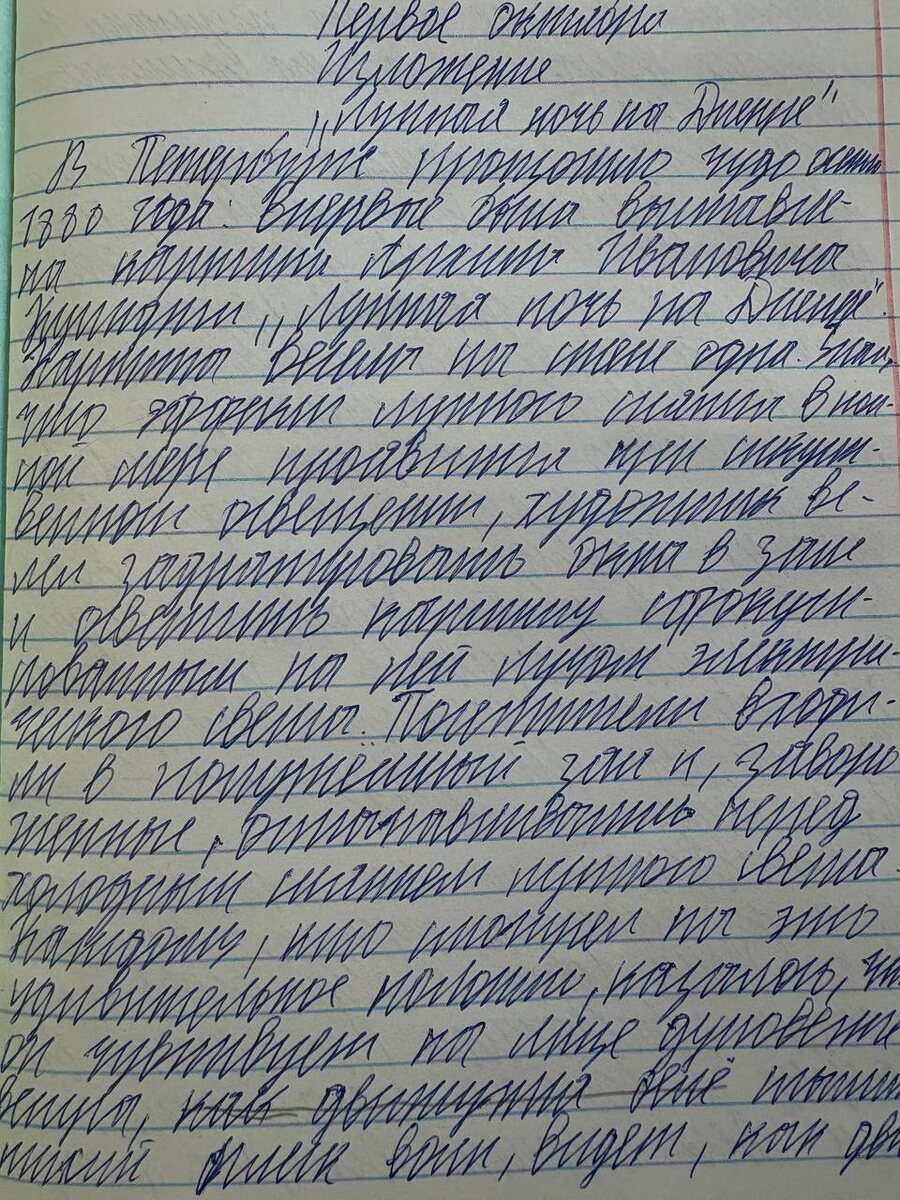 Первое октября
Изложение
„Лунная ночь на Днепре"
В Петербурге произошло чудо осенью
1880 года: впервые была выставле-
на картина Архипа Ивановича
Куинджи „Лунная ночь на Днепре".
Картина висела на стене одна. Зная,
что эффект лунного сияния в пол-
ной мере проявится при искусст-
венном освещении, художник ве-
лел задрапировать окна в зале
и осветить картину сфокуси-
рованным на ней лучом электри-
ческого света. Посетители входи-
ли в полутёмный зал и, заворо
женные, останавливались перед
холодным сиянием лунного света.
Каждому, кто смотрел на это
удивительное полотно, казалось, что
он чувствует на лице дуновение
ветра,
блеск волн, видет, как дви